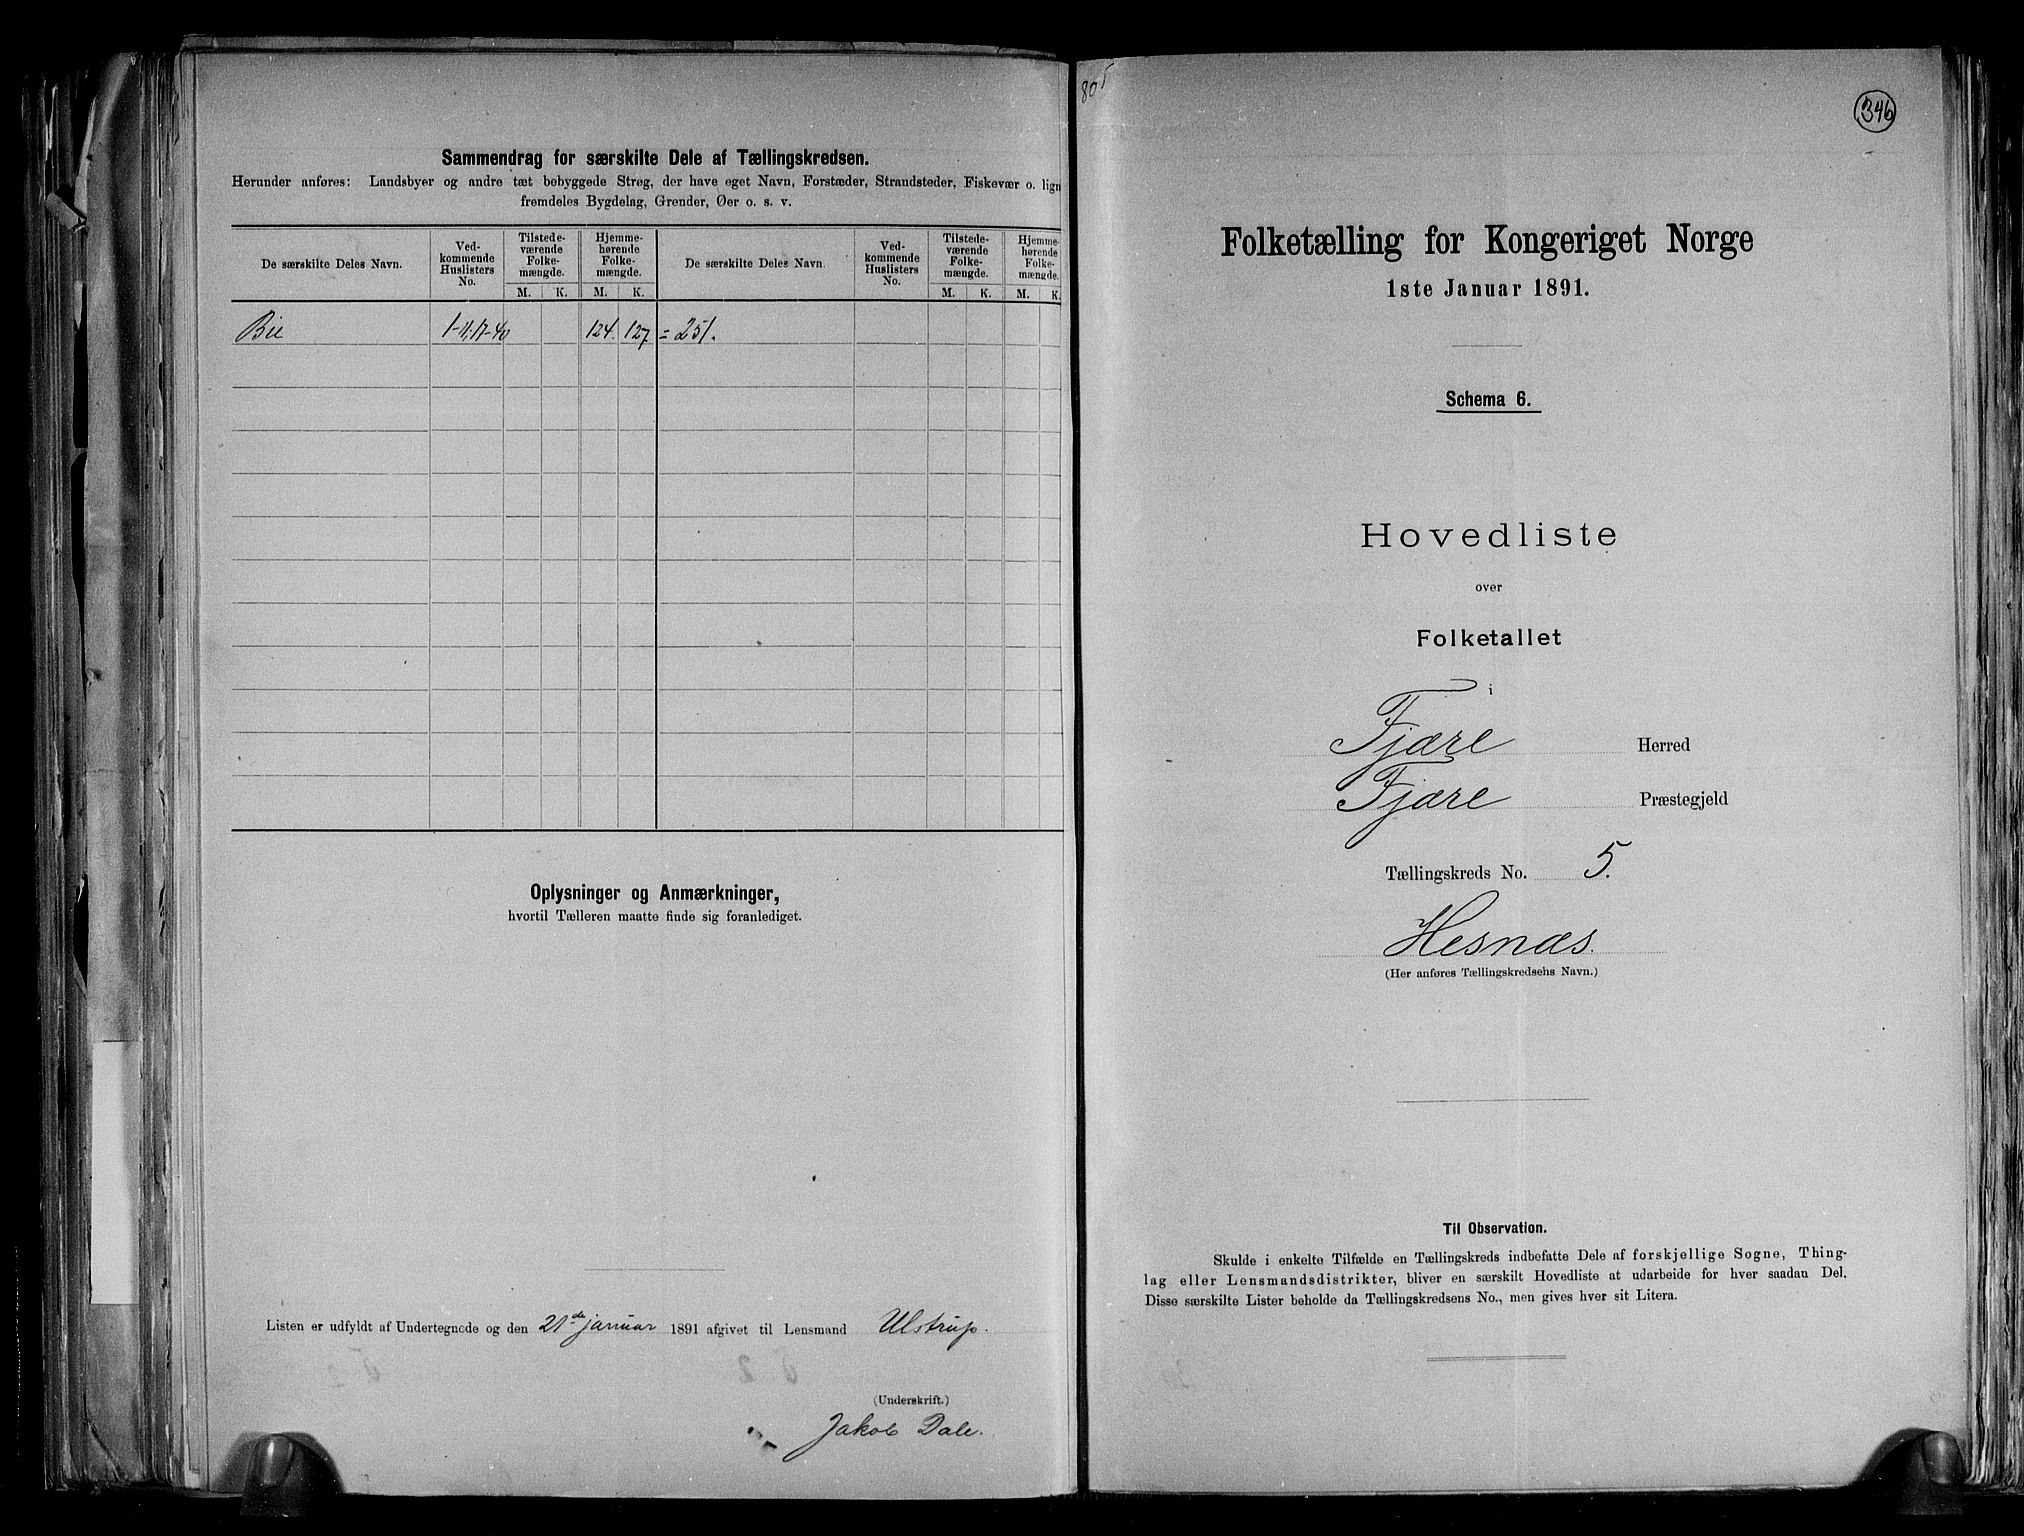 Sammendrag for særskilte Dele af Tællingskredsen.
Herunder anføres: Landsbyer og andre tæt bebyggede Strøg, der have eget Navn, Forstæder, Strandsteder, Fiskevær o. lign
fremdeles Bygdelag, Grender, Øer o. s. v.
De særskilte Deles Navn. Ved-kommende Huslisters No. Tilstede-værende Folke-mængde. Hjemme-hørende Folke-mængde. De særskilte Deles Navn. Ved-kommende Huslisters No. Tilstede-værende Folke-mængde. Hjemme-hørende Folke-mængde.
M. K. M. K. M. K. M. K.
Bie 1-11, 17-40 124. 127 = 251.
Oplysninger og Anmærkninger,
hvortil Tælleren maatte finde sig foranlediget.
Listen er udfyldt af Undertegnede og den 21de januar 1891 afgivet til Lensmand Ulstrup.
(Underskrift.)
Jakob Dale.
805
346
Folketælling for Kongeriget Norge
1ste Januar 1891.
Schema 6.
Hovedliste
over
Folketallet
i
Fjære Herred
Fjære Præstegjeld
Tællingskreds No. 5.
Hesnæs.
(Her anføres Tællingskredsens Navn.)
Til Observation.
Skulde i enkelte Tilfælde en Tællingskreds indbefatte Dele af forskjellige Sogne, Thing-
lag eller Lensmandsdistrikter, bliver en særskilt Hovedliste at udarbeide for hver saadan Del.
Disse særskilte Lister beholde da Tællingskredsens No., men gives hver sit Litera.